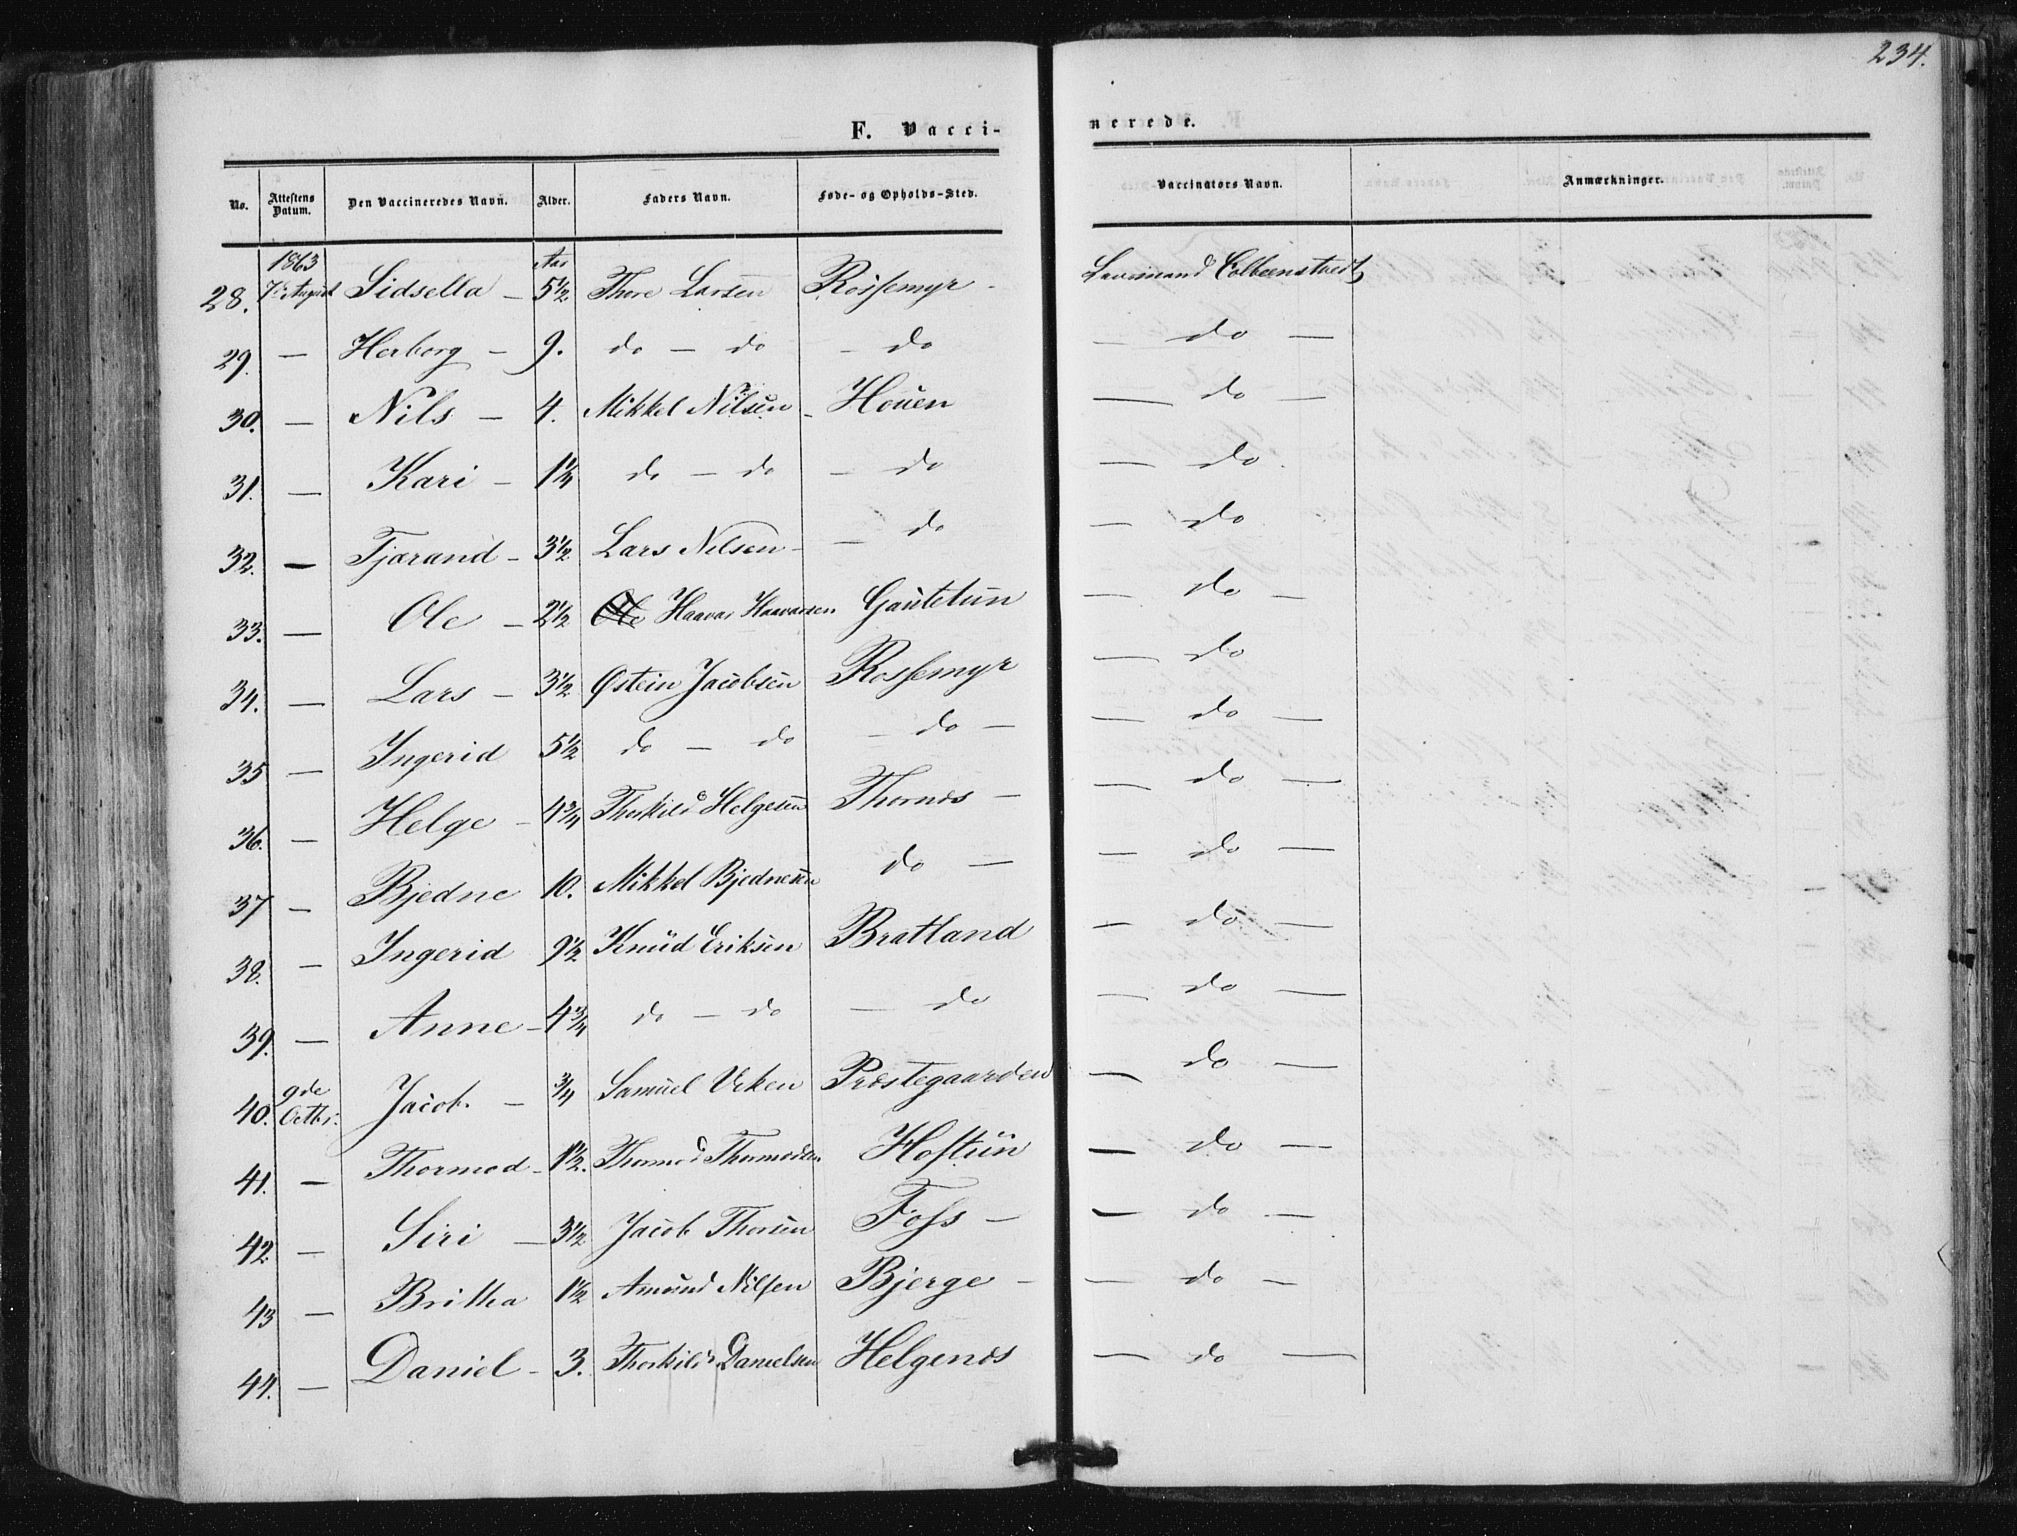 234.
F. Vacci- nerede.
No. Attestens Datum. Den Vaccineredes Navn. Alder. Faders Navn. Føde- og Opholds-Sted. Vaccinators Navn. Anmærkninger.
1863 Aar
28. 7de August Sidsella - 5 1/2 Thore Larsen Rossemyr -
29. — Herborg - 9. do - do - do — do —
30. — Nils - 4. Mikkel Nilsen - Houen — do —
31. — Kari - 1 1/4 do - do - do — do
32. — Tjærand - 3 1/2 Lars Nilsen - — do — do
33. — Ole - 2 1/2 Haavar Haavarsen Gautetun — do —
34. — Lars - 3 1/2 Østein Jacobsen Rossemyr — do
35 — Ingerid 5 1/2 do - do - do - — do —
36. — Helge - 4 3/4 Thorkild Helgesen Thornæs - — do —
37 — Bjedne 10. Mikkel Bjednesen do — — do —
38. — Ingerid 9 1/2 Knud Eriksen Bratland — do —
39. — Anne - 4 3/4 do - do — do — do —
40. 9de Octbr: Jacob. - 3/4 Samuel Præstegaarden — do —
41. — Thormod - 1 1/2. Thormod Thormodsen Hoftun — do —
42. — Siri - 3 1/2 Jacob Thorsen Foss - — do —
43 — Britha 1 1/2 Amund Nilsen Bjerge - — do —
44. — Daniel - 3. Thorkild Danielsen Helgenæs — do —